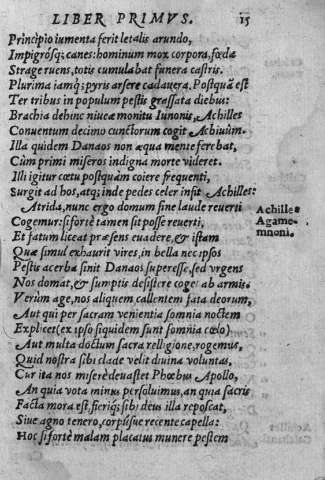 LIBER PRIMVS. 15
Principio iumenta ferit letalis arundo,
Impigrosq; canes: hominum mox corpora, fœda
Strage ruens, totis cumulabat funera castris.
Plurima iamq; pyris arsere cadauera. Postquã est
Ter tribus in populum pestis grassata diebus:
Brachia dehinc niueæ monitu Iunonis, Achilles
Conuentum decimo cunctorum cogit Achiuûm.
Illa quidem Danaos non æqua mente ferebat,
Cùm primi miseros indigna morte videret.
Illi igitur cœtu postquàm coiere frequenti,
Surgit ad hos, atq; inde pedes celer insit Achilles:
Atrida, nunc ergo domum sine laude reuerti
Achilles
Cogemur: si fortè tamen sit posse reuerti,
Agame-
Et fatum liceat præsens euadere, & istam
mnoni.
Quæ simul exhaurit vires, in bella nec ipsos
Pestis acerba sinit Danaos superesse, sed vrgens
Nos domat, & sumptis desistere cogit ab armis.
Verùm age, nos aliquem callentem fata deorum,
Aut qui per sacram venientia somnia noctem
Explicet (ex ipso siquidem sunt somnia cœlo)
Aut multa doctum sacra relligione, rogemus,
Quid nostra sibi clade velit diuina voluntas,
Cur ita nos miserè deuastet Phœbus Apollo,
An quia vota minus persoluimus, an quia sacris
Facta mora est, fieriq; sibi deus illa reposcat,
Siue agno tenero, corpúsue recente capella:
Hoc si fortè malam placatus munere pestem